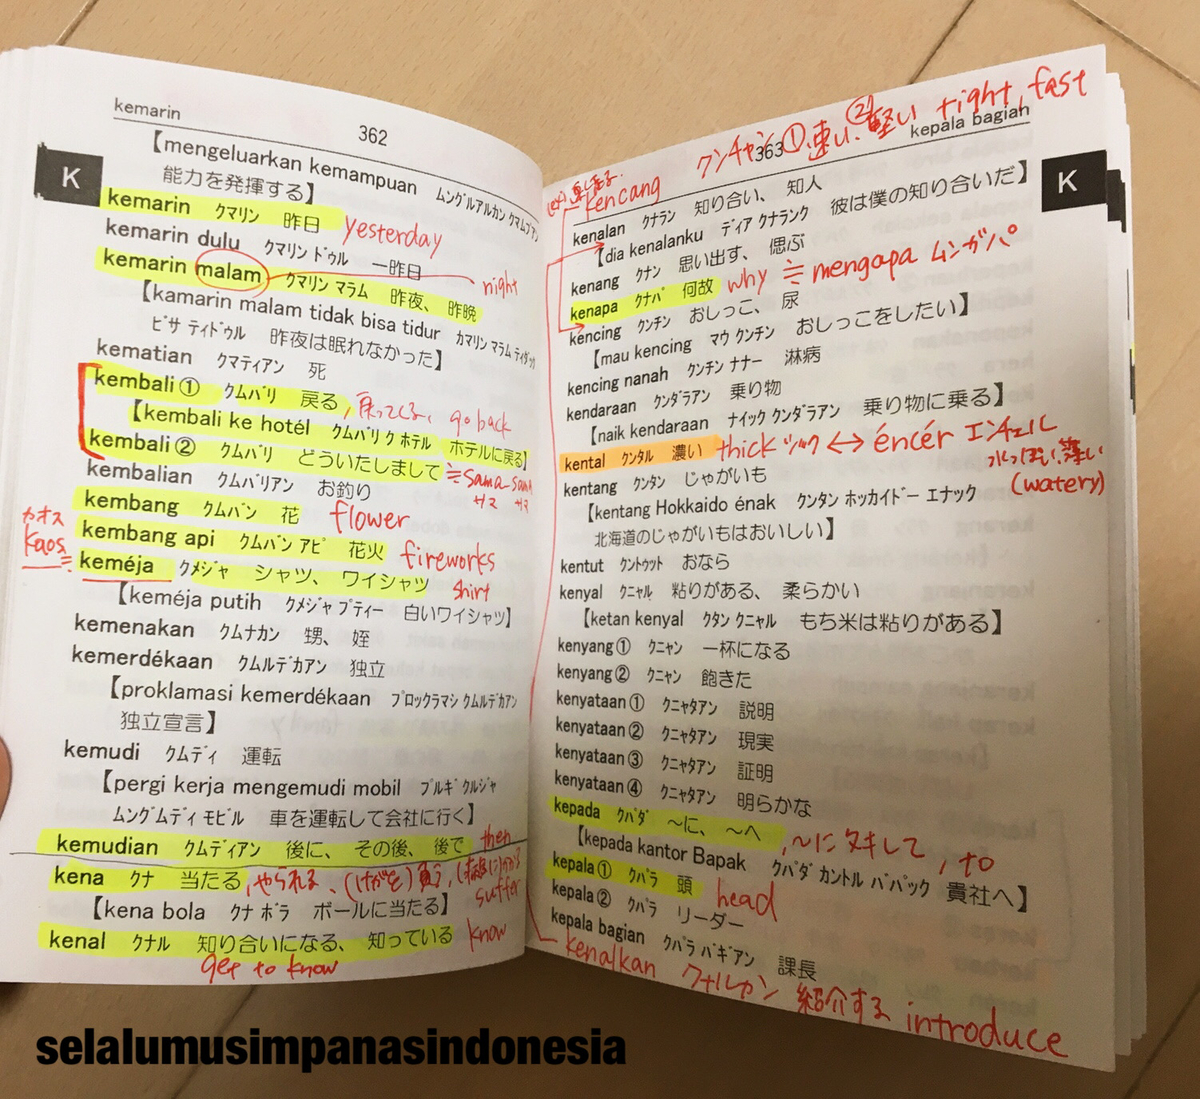 kemarin
362
K
【mengeluarkan kemampuan ムングルアルカン クマムプアン
能力を発揮する】
kemarin クマリン 昨日 yesterday
kemarin dulu クマリン ドゥル 一昨日
kemarin malam クマリン マラム 昨夜、昨晩 night
【kamarin malam tidak bisa tidur カマリン マラム ティダック
ビサ ティドゥル 昨夜は眠れなかった】
kematian クマティアン 死
kembali① クムバリ 戻る, 戻ってくる、 go back
【kembali ke hotél クムバリ ク ホテル ホテルに戻る】
kembali② クムバリ どういたしまして ≒sama-sama
サマ サマ
kembalian クムバリアン お釣り
kembang クムバン 花 flower
kembang api クムバン アピ 花火 fireworks
カオス
kaos=
keméja クメジャ シャツ、ワイシャツ shirt
【keméja putih クメジャ プティー 白いワイシャツ】
kemenakan クムナカン 甥、姪
kemerdékaan クムルデカアン 独立
【proklamasi kemerdékaan プロックラマシ クムルデカアン
独立宣言】
kemudi クムディ 運転
【pergi kerja mengemudi mobil プルギ クルジャ
ムングムディ モビル 車を運転して会社に行く】
kemudian クムディアン 後に、その後、後で then
kena クナ 当たる, やられる、(けがを)負う, suffer
【kena bola クナ ボラ ボールに当たる】
kenal クナル 知り合いになる、知っている know
get to know
クンチャン ①速い、②堅い tight, fast
363
kepala bagian
K
kencang
kenalan クナラン 知り合い、知人
【dia kenalanku ディア クナランク 彼は僕の知り合いだ】
kenang クナン 思い出す、偲ぶ
kenapa クナパ 何故 why ≒ mengapa ムンガパ
kencing クンチン おしっこ、尿
【mau kencing マウ クンチン おしっこをしたい】
kencing nanah クンチン ナナー 淋病
kendaraan クンダラアン 乗り物
【naik kendaraan ナイック クンダラアン 乗り物に乗る】
kental クンタル 濃い thick シック ↔ éncér エンチェル
水っぽい、薄い
(watery)
kentang クンタン じゃがいも
【kentang Hokkaido énak クンタン ホッカイドー エナック
北海道のじゃがいもはおいしい】
kentut クントゥット おなら
kenyal クニャル 粘りがある、柔らかい
【ketan kenyal クタン クニャル もち米は粘りがある】
kenyang① クニャン 一杯になる
kenyang② クニャン 飽きた
kenyataan① クニャタアン 説明
kenyataan② クニャタアン 現実
kenyataan③ クニャタアン 証明
kenyataan④ クニャタアン 明らかな
kepada クパダ ～に、～へ , ～に対して , to
【kepada kantor Bapak クパダ カントル バパック 貴社へ】
kepala① クパラ 頭 head
kepala② クパラ リーダー
kepala bagian クパラ バギアン 課長
kenalkan クナルカン 紹介する introduce
selalumusimpanasindonesia